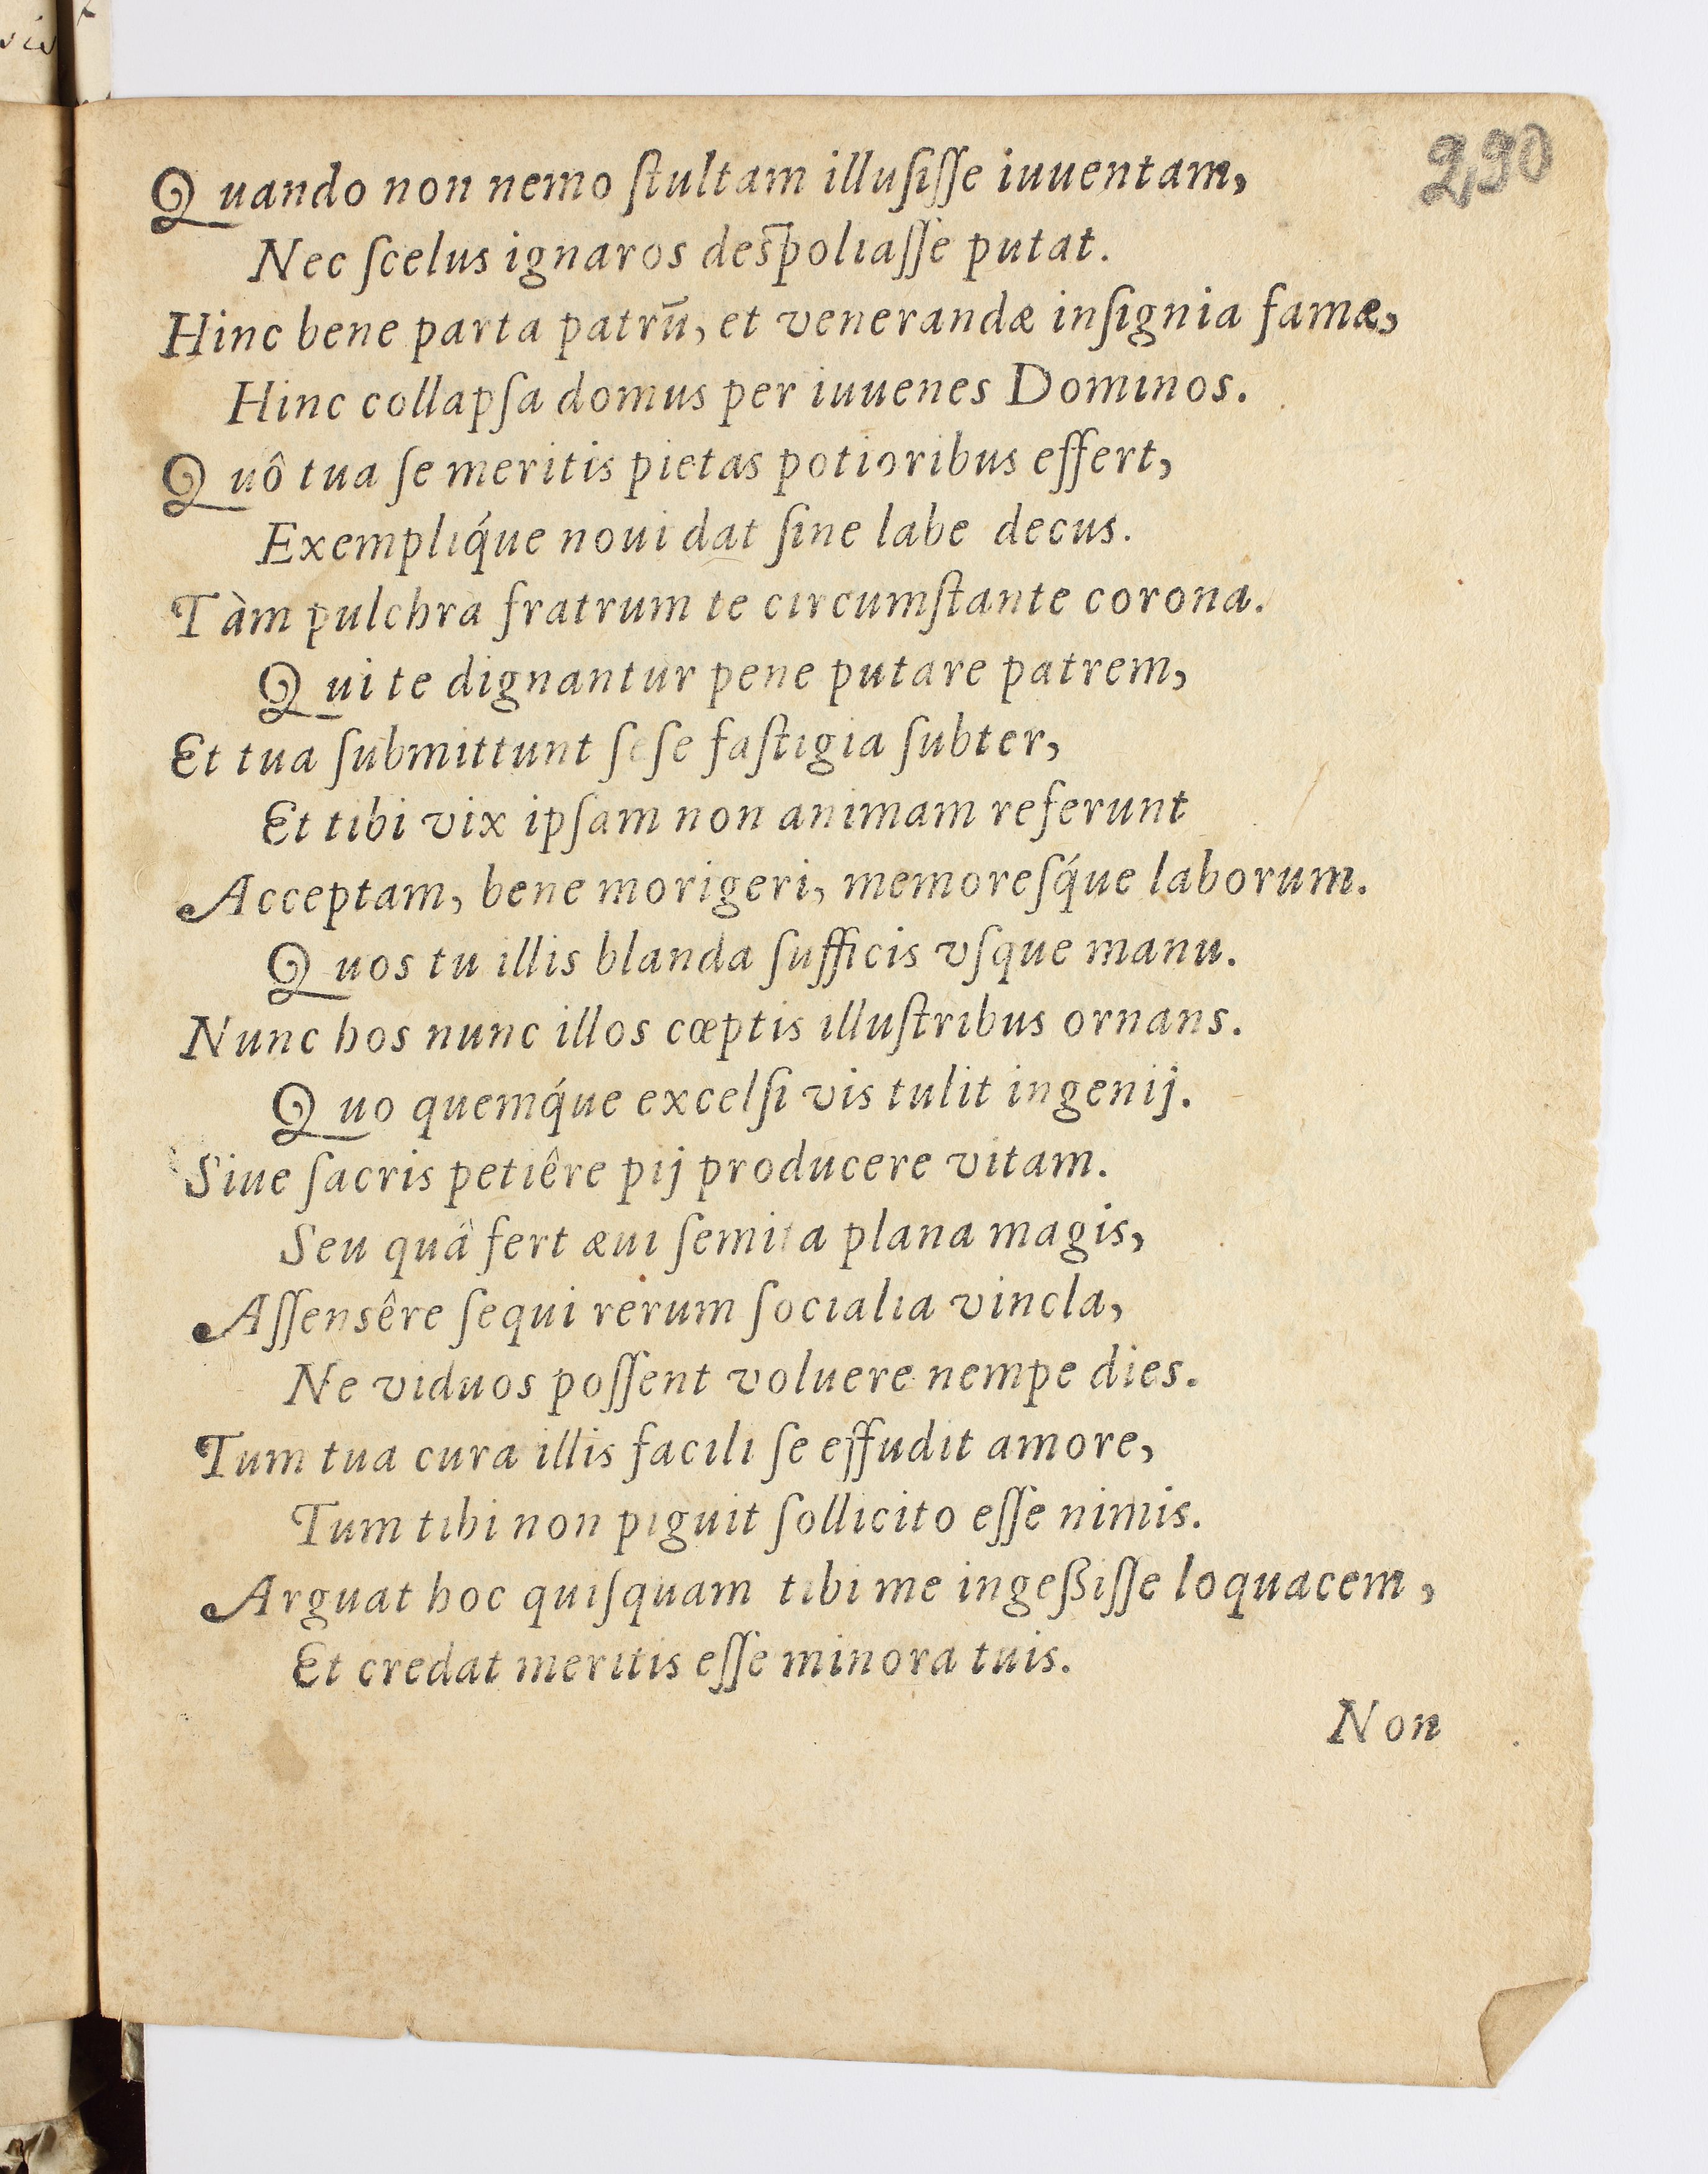 290
Quando non nemo ſtultam illuſiſſe iuuentam,
Nec ſcelus ignaros deſpoliaſſe putat.
Hinc bene parta patrū, et venerandæ inſignia famæ,
Hinc collapſa domus per iuuenes Dominos.
Quô tua ſe meritis pietas potioribus effert,
Exempliq́ue noui dat ſine labe decus.
Tàm pulchra fratrum te circumſtante corona.
Qui te dignantur pene putare patrem,
Et tua ſubmittunt ſeſe faſtigia ſubter,
Et tibi vix ipſam non animam referunt
Acceptam, bene morigeri, memoreſq́ue laborum.
Quos tu illis blanda ſufficis vſque manu.
Nunc hos nunc illos cœptis illuſtribus ornans.
Quo quemq́ue excelſi vis tulit ingenij.
Siue ſacris petiêre pij producere vitam.
Seu quâ fert æui ſemita plana magis,
Aſſensêre ſequi rerum ſocialia vincla,
Ne viduos poſſent voluere nempe dies.
Tum tua cura illis facili ſe effudit amore,
Tum tibi non piguit ſollicito eſſe nimis.
Arguat hoc quiſquam tibi me ingeßiſſe loquacem,
Et credat meritis eſſe minora tuis.
Non